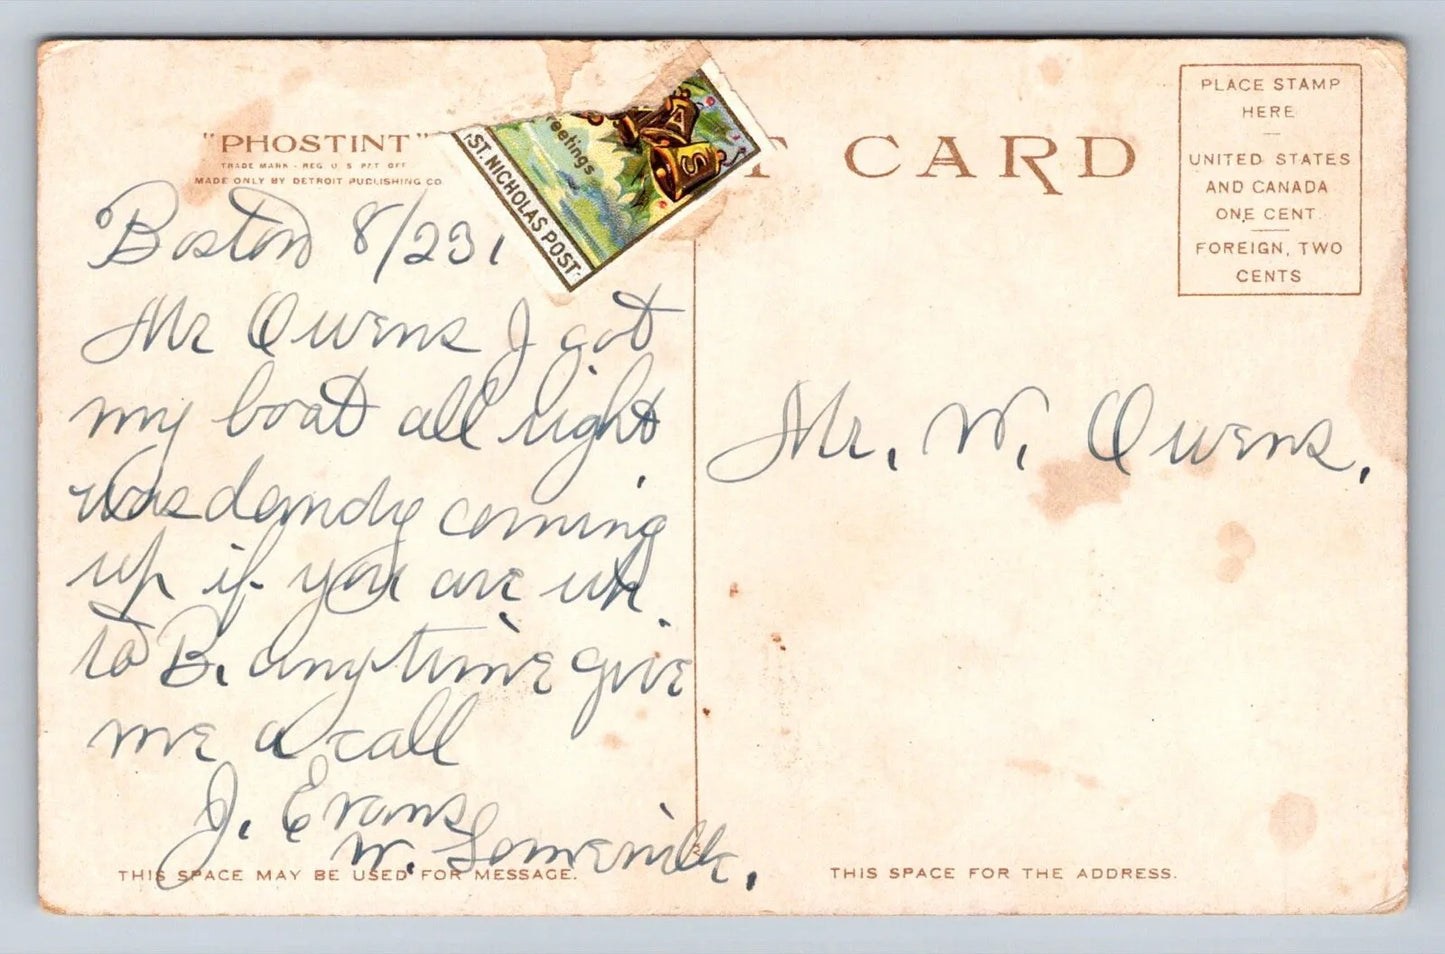 "PHOSTINT"
TRADE MARK - REG U S PAT OFF
MADE ONLY BY DETROIT PUBLISHING CO.
T CARD
PLACE STAMP
HERE
UNITED STATES
AND CANADA
ONE CENT.
FOREIGN, TWO
CENTS
reetings
A
S
ST. NICHOLAS POST.
Boston 8/23,
Mr Owens I got
my boat all right
was dandy coming
up if you are up
to B. anytime give
me a call
J. Evans
W. Somerville.
Mr. W. Owens.
THIS SPACE MAY BE USED FOR MESSAGE.
THIS SPACE FOR THE ADDRESS.